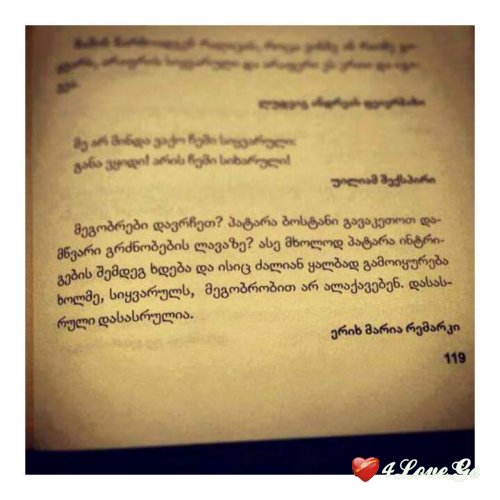 ლუდვიგ ანდრეას ფეიერბახი
მე არ მინდა ვაქო ჩემი სიყვარული;
განა ვყიდი! არის ჩემი სიხარული!
უილიამ შექსპირი
მეგობრები დავრჩეთ? პატარა ბოსტანი გავაკეთოთ და-
მწვარი გრძნობების ლავაზე? ასე მხოლოდ პატარა ინტრი-
გების შემდეგ ხდება და ისიც ძალიან ყალბად გამოიყურება
ხოლმე, სიყვარულს, მეგობრობით არ ალაქავებენ. დასას-
რული დასასრულია.
ერიხ მარია რემარკი
119
4Love.Ge